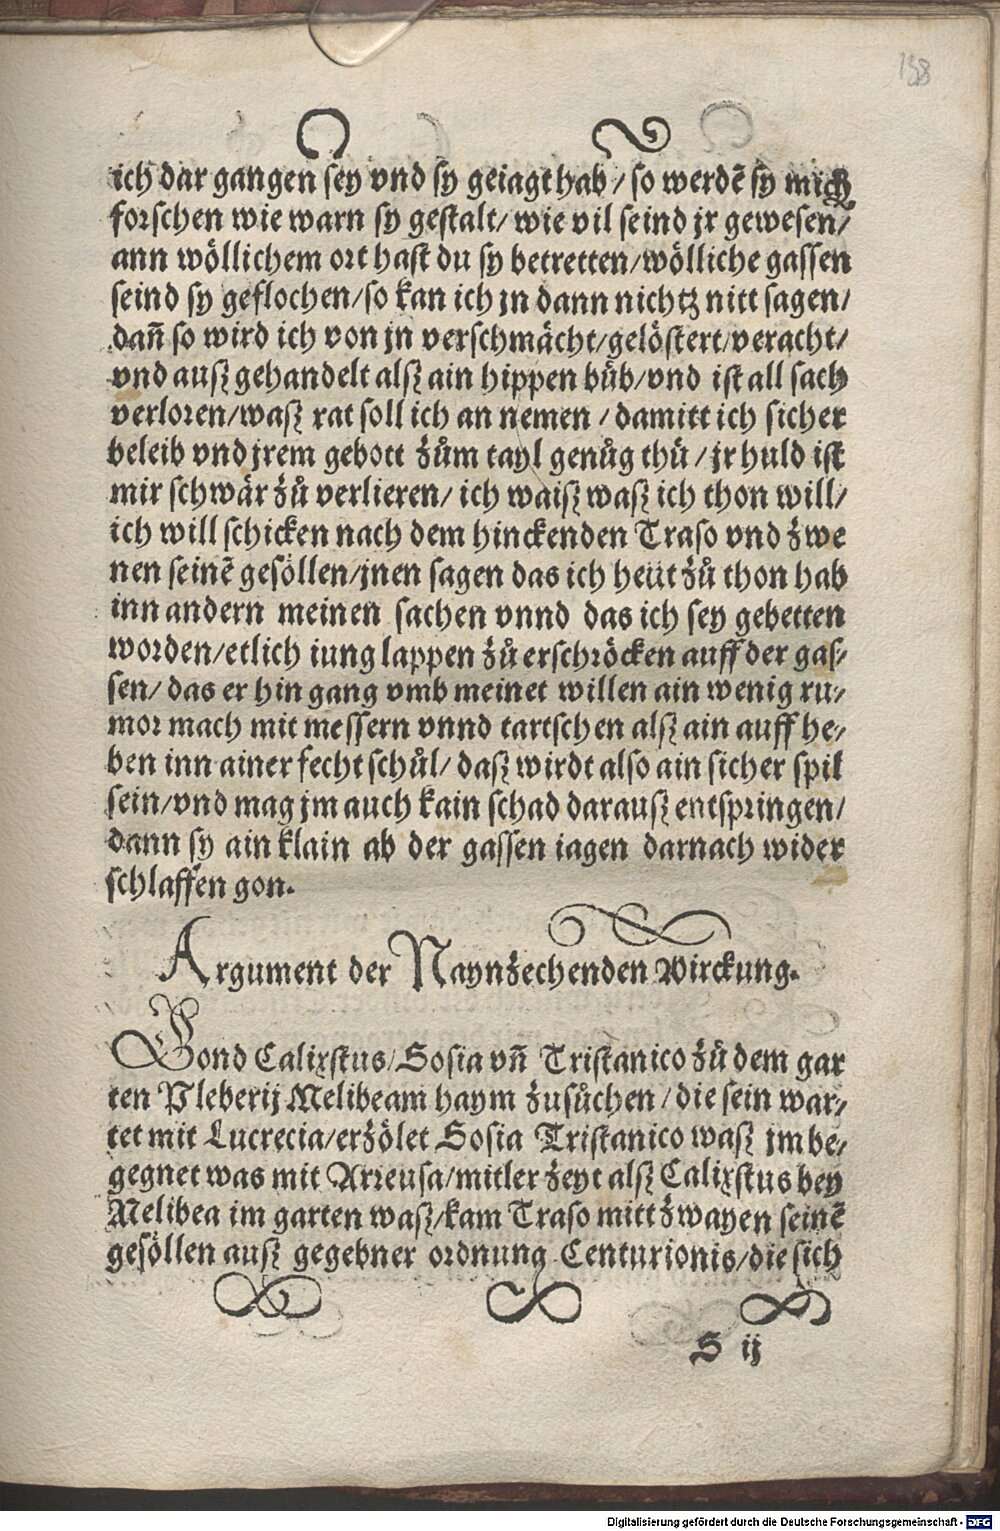 138
ich dar gangen sey vnd sy geiagt hab / so werdē sy mich
forschen wie warn sy gestalt/ wie vil seind jr gewesen/
ann wöllichem ort hast du sy betretten/wölliche gassen
seind sy geflochen/so kan ich jn dann nichtz nitt sagen/
dañ so wird ich von jn verschmächt/gelöstert/veracht/
vnd ausz gehandelt alsz ain hippen bůb/vnd ist all sach
verloren/wasz rat soll ich an nemen / damitt ich sicher
beleib vnd jrem gebott zům tayl genůg thů / jr huld ist
mir schwär zů verlieren/ ich waisz wasz ich thon will/
ich will schicken nach dem hinckenden Traso vnd zwe
nen seinē gesöllen/jnen sagen das ich heüt zů thon hab
inn andern meinen sachen vnnd das ich sey gebetten
worden/etlich iung lappen zů erschröcken auff der gas/
sen/ das er hin gang vmb meinet willen ain wenig ru/
mor mach mit messern vnnd tartschen alsz ain auff he/
ben inn ainer fecht schůl/ dasz wirdt also ain sicher spil
sein/vnd mag jm auch kain schad darausz entspringen/
dann sy ain klain ab der gassen iagen darnach wider
schlaffen gon.
Argument der Naynzechenden Wirckung.
Gond Calixstus/Sosia vñ Tristanico zů dem gar
ten Pleberij Melibeam haym zusůchen / die sein war/
tet mit Lucrecia/erzölet Sosia Tristanico wasz jm be/
gegnet was mit Arreusa/mitler zeyt alsz Calixstus bey
Melibea im garten wasz/kam Traso mitt zwayen seinē
gesöllen ausz gegebner ordnung Centurionis/die sich
S ij
Digitalisierung gefördert durch die Deutsche Forschungsgemeinschaft - DFG